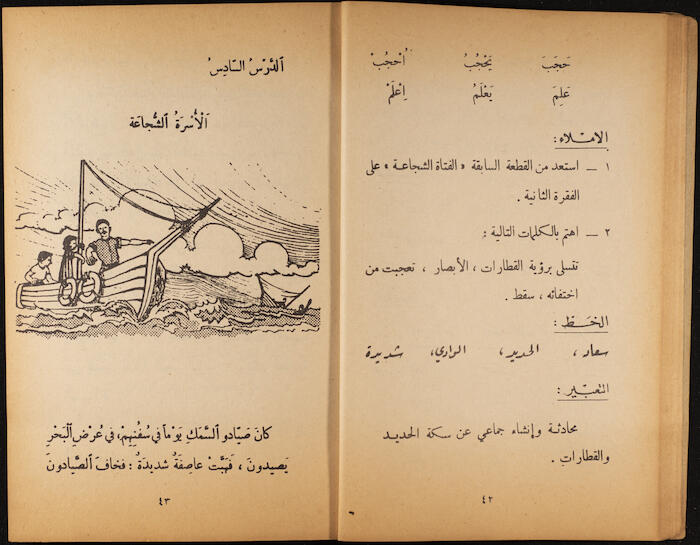 حَجَبَ يَحْجُبُ اُحْجُبْ
عَلِمَ يَعْلَمُ اِعْلَمْ
الاملاء :
١ — استعد من القطعة السابقة « الفتاة الشجاعة » على
الفقرة الثانية .
٢ — اهتم بالكلمات التالية :
تتسلى برؤية القطارات ، الأبصار ، تعجبت من
اختفائه ، سقط .
الخط :
سعاد ، الحديد ، الوادي ، شديدة
التعبير :
محادثة وإنشاء جماعي عن سكة الحديد
والقطارات .
٤٢
الدَّرْسُ السَّادِسُ
الْأُسْرَةُ الشُّجَاعَة
كانَ صَيّادو السَّمَكِ يَوْماً في سُفُنِهِمْ، في عُرْضِ الْبَحْرِ
يَصيدونَ ، فَهَبَّتْ عاصِفَةٌ شديدَةٌ : فخافَ الصَّيّادونَ
٤٣